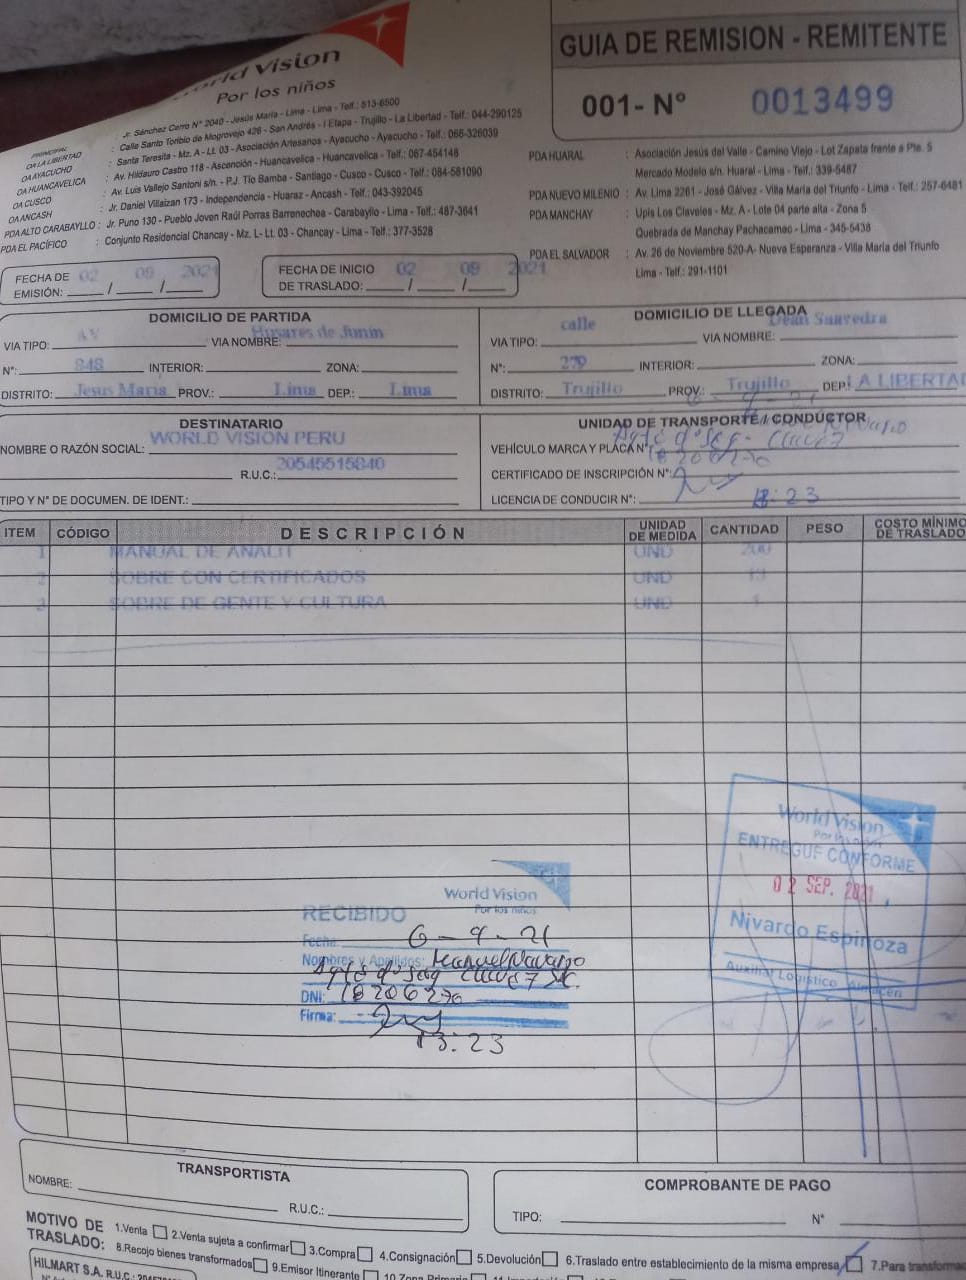 World Vision
Por los niños
GUIA DE REMISION - REMITENTE
001- Nº 0013499
PRINCIPAL : Jr. Sánchez Cerro Nº 2040 - Jesús María - Lima - Lima - Telf.: 513-6500
OA LA LIBERTAD : Calle Santo Toribio de Mogrovejo 426 - San Andrés - I Etapa - Trujillo - La Libertad - Telf.: 044-290125
OA AYACUCHO : Santa Teresita - Mz. A - Lt. 03 - Asociación Artesanos - Ayacucho - Ayacucho - Telf.: 066-326039
OA HUANCAVELICA : Av. Hildauro Castro 118 - Ascención - Huancavelica - Huancavelica - Telf.: 067-454148
OA CUSCO : Av. Luis Vallejo Santoni s/n. - P.J. Tío Bamba - Santiago - Cusco - Cusco - Telf.: 084-581090
OA ANCASH : Jr. Daniel Villaizan 173 - Independencia - Huaraz - Ancash - Telf.: 043-392045
PDA ALTO CARABAYLLO : Jr. Puno 130 - Pueblo Joven Raúl Porras Barrenechea - Carabayllo - Lima - Telf.: 487-3641
PDA EL PACÍFICO : Conjunto Residencial Chancay - Mz. L- Lt. 03 - Chancay - Lima - Telf.: 377-3528
PDA HUARAL : Asociación Jesús del Valle - Camino Viejo - Lot Zapata frente a Pte. 5
Mercado Modelo s/n. Huaral - Lima - Telf.: 339-5487
PDA NUEVO MILENIO : Av. Lima 2261 - José Gálvez - Villa María del Triunfo - Lima - Telf.: 257-6481
PDA MANCHAY : Upis Los Claveles - Mz. A - Lote 04 parte alta - Zona 5
Quebrada de Manchay Pachacamac - Lima - 345-5438
PDA EL SALVADOR : Av. 26 de Noviembre 520-A- Nueva Esperanza - Villa María del Triunfo
Lima - Telf.: 291-1101
FECHA DE EMISIÓN: 02 / 09 / 2021
FECHA DE INICIO DE TRASLADO: 02 / 09 / 2021
DOMICILIO DE PARTIDA
VIA TIPO: AV VIA NOMBRE: Husares de Junin
N°: 848 INTERIOR: ZONA:
DISTRITO: Jesus Maria PROV.: Lima DEP.: Lima
DOMICILIO DE LLEGADA
VIA TIPO: calle VIA NOMBRE: Dean Saavedra
N°: 279 INTERIOR: ZONA:
DISTRITO: Trujillo PROV.: Trujillo DEP.: LA LIBERTAD
DESTINATARIO
NOMBRE O RAZÓN SOCIAL: WORLD VISION PERU
R.U.C.: 20545515840
TIPO Y N° DE DOCUMEN. DE IDENT.:
UNIDAD DE TRANSPORTE / CONDUCTOR
VEHÍCULO MARCA Y PLACA N°:
CERTIFICADO DE INSCRIPCIÓN N°:
LICENCIA DE CONDUCIR N°: 13:23
ITEM CÓDIGO DESCRIPCIÓN UNIDAD DE MEDIDA CANTIDAD PESO COSTO MÍNIMO DE TRASLADO
1 MANUAL DE ANALIT UND 200
2 SOBRE CON CERTIFICADOS UND 13
3 SOBRE DE GENTE Y CULTURA UND 1
World Vision
Por los niños
ENTREGUE CONFORME
02 SEP. 2021
Nivardo Espinoza
Auxiliar Logístico Almacen
World Vision
Por los niños
RECIBIDO
Fecha: 6-9-21
Nombres y Apellidos: Manuel Navarro
DNI: 18206270
Firma:
13:23
TRANSPORTISTA
NOMBRE:
R.U.C.:
COMPROBANTE DE PAGO
TIPO: N°
MOTIVO DE TRASLADO: 1.Venta 2.Venta sujeta a confirmar 3.Compra 4.Consignación 5.Devolución 6.Traslado entre establecimiento de la misma empresa 7.Para transforma
8.Recojo bienes transformados 9.Emisor Itinerante
HILMART S.A. R.U.C.: